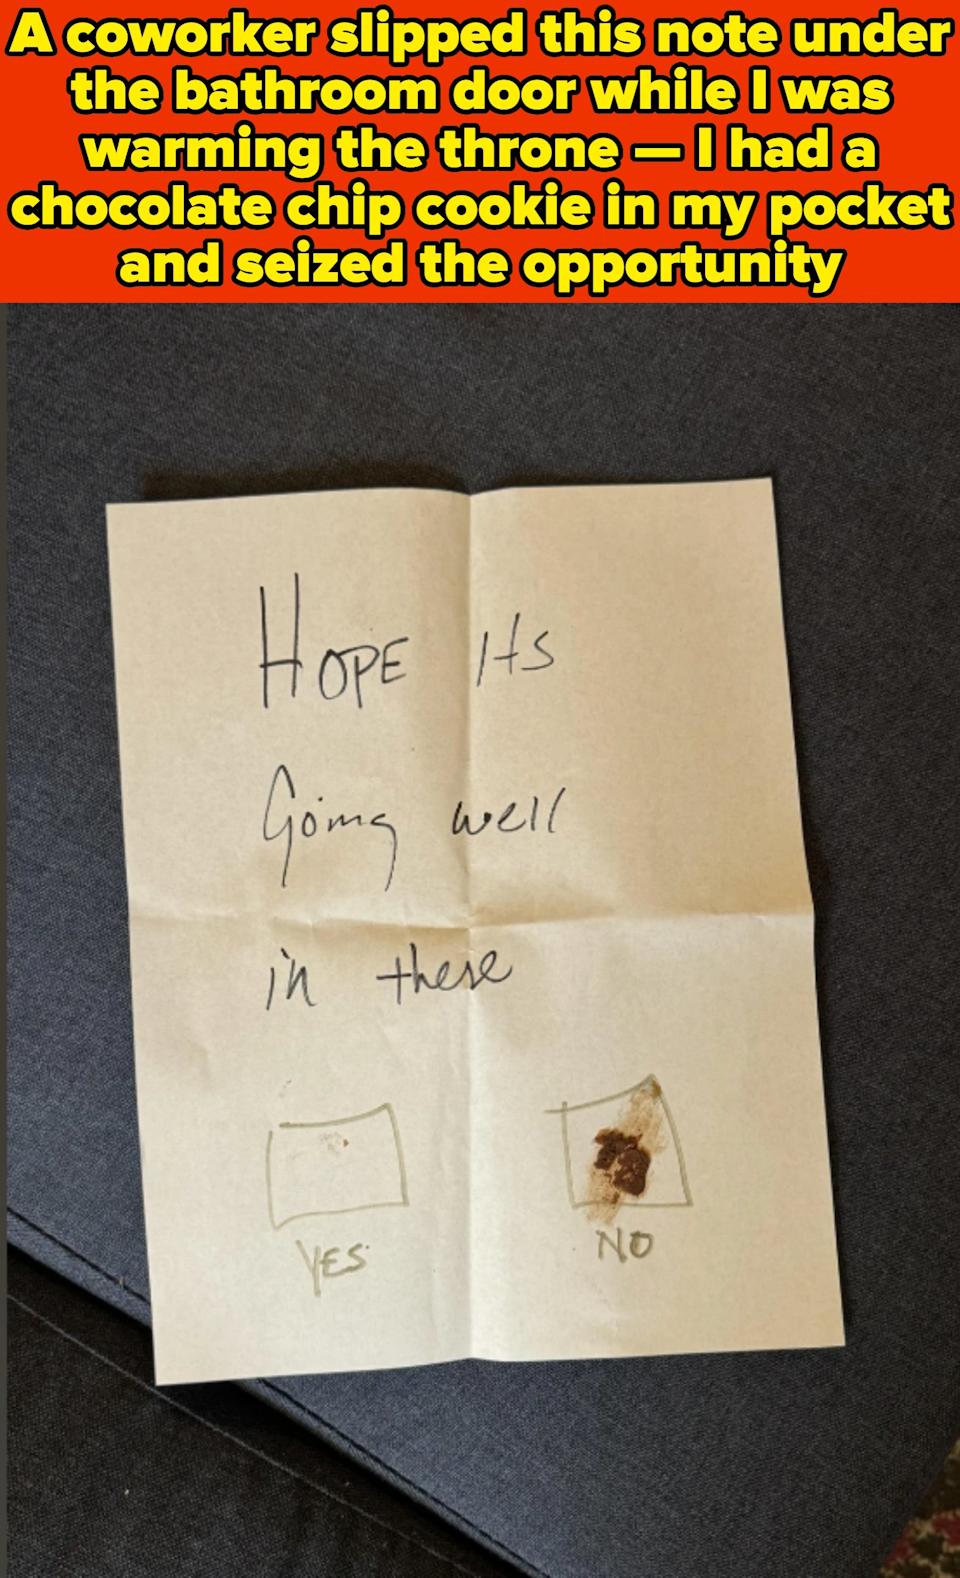 A coworker slipped this note under
the bathroom door while I was
warming the throne — I had a
chocolate chip cookie in my pocket
and seized the opportunity
HOPE Its
Going well
in there
YES NO